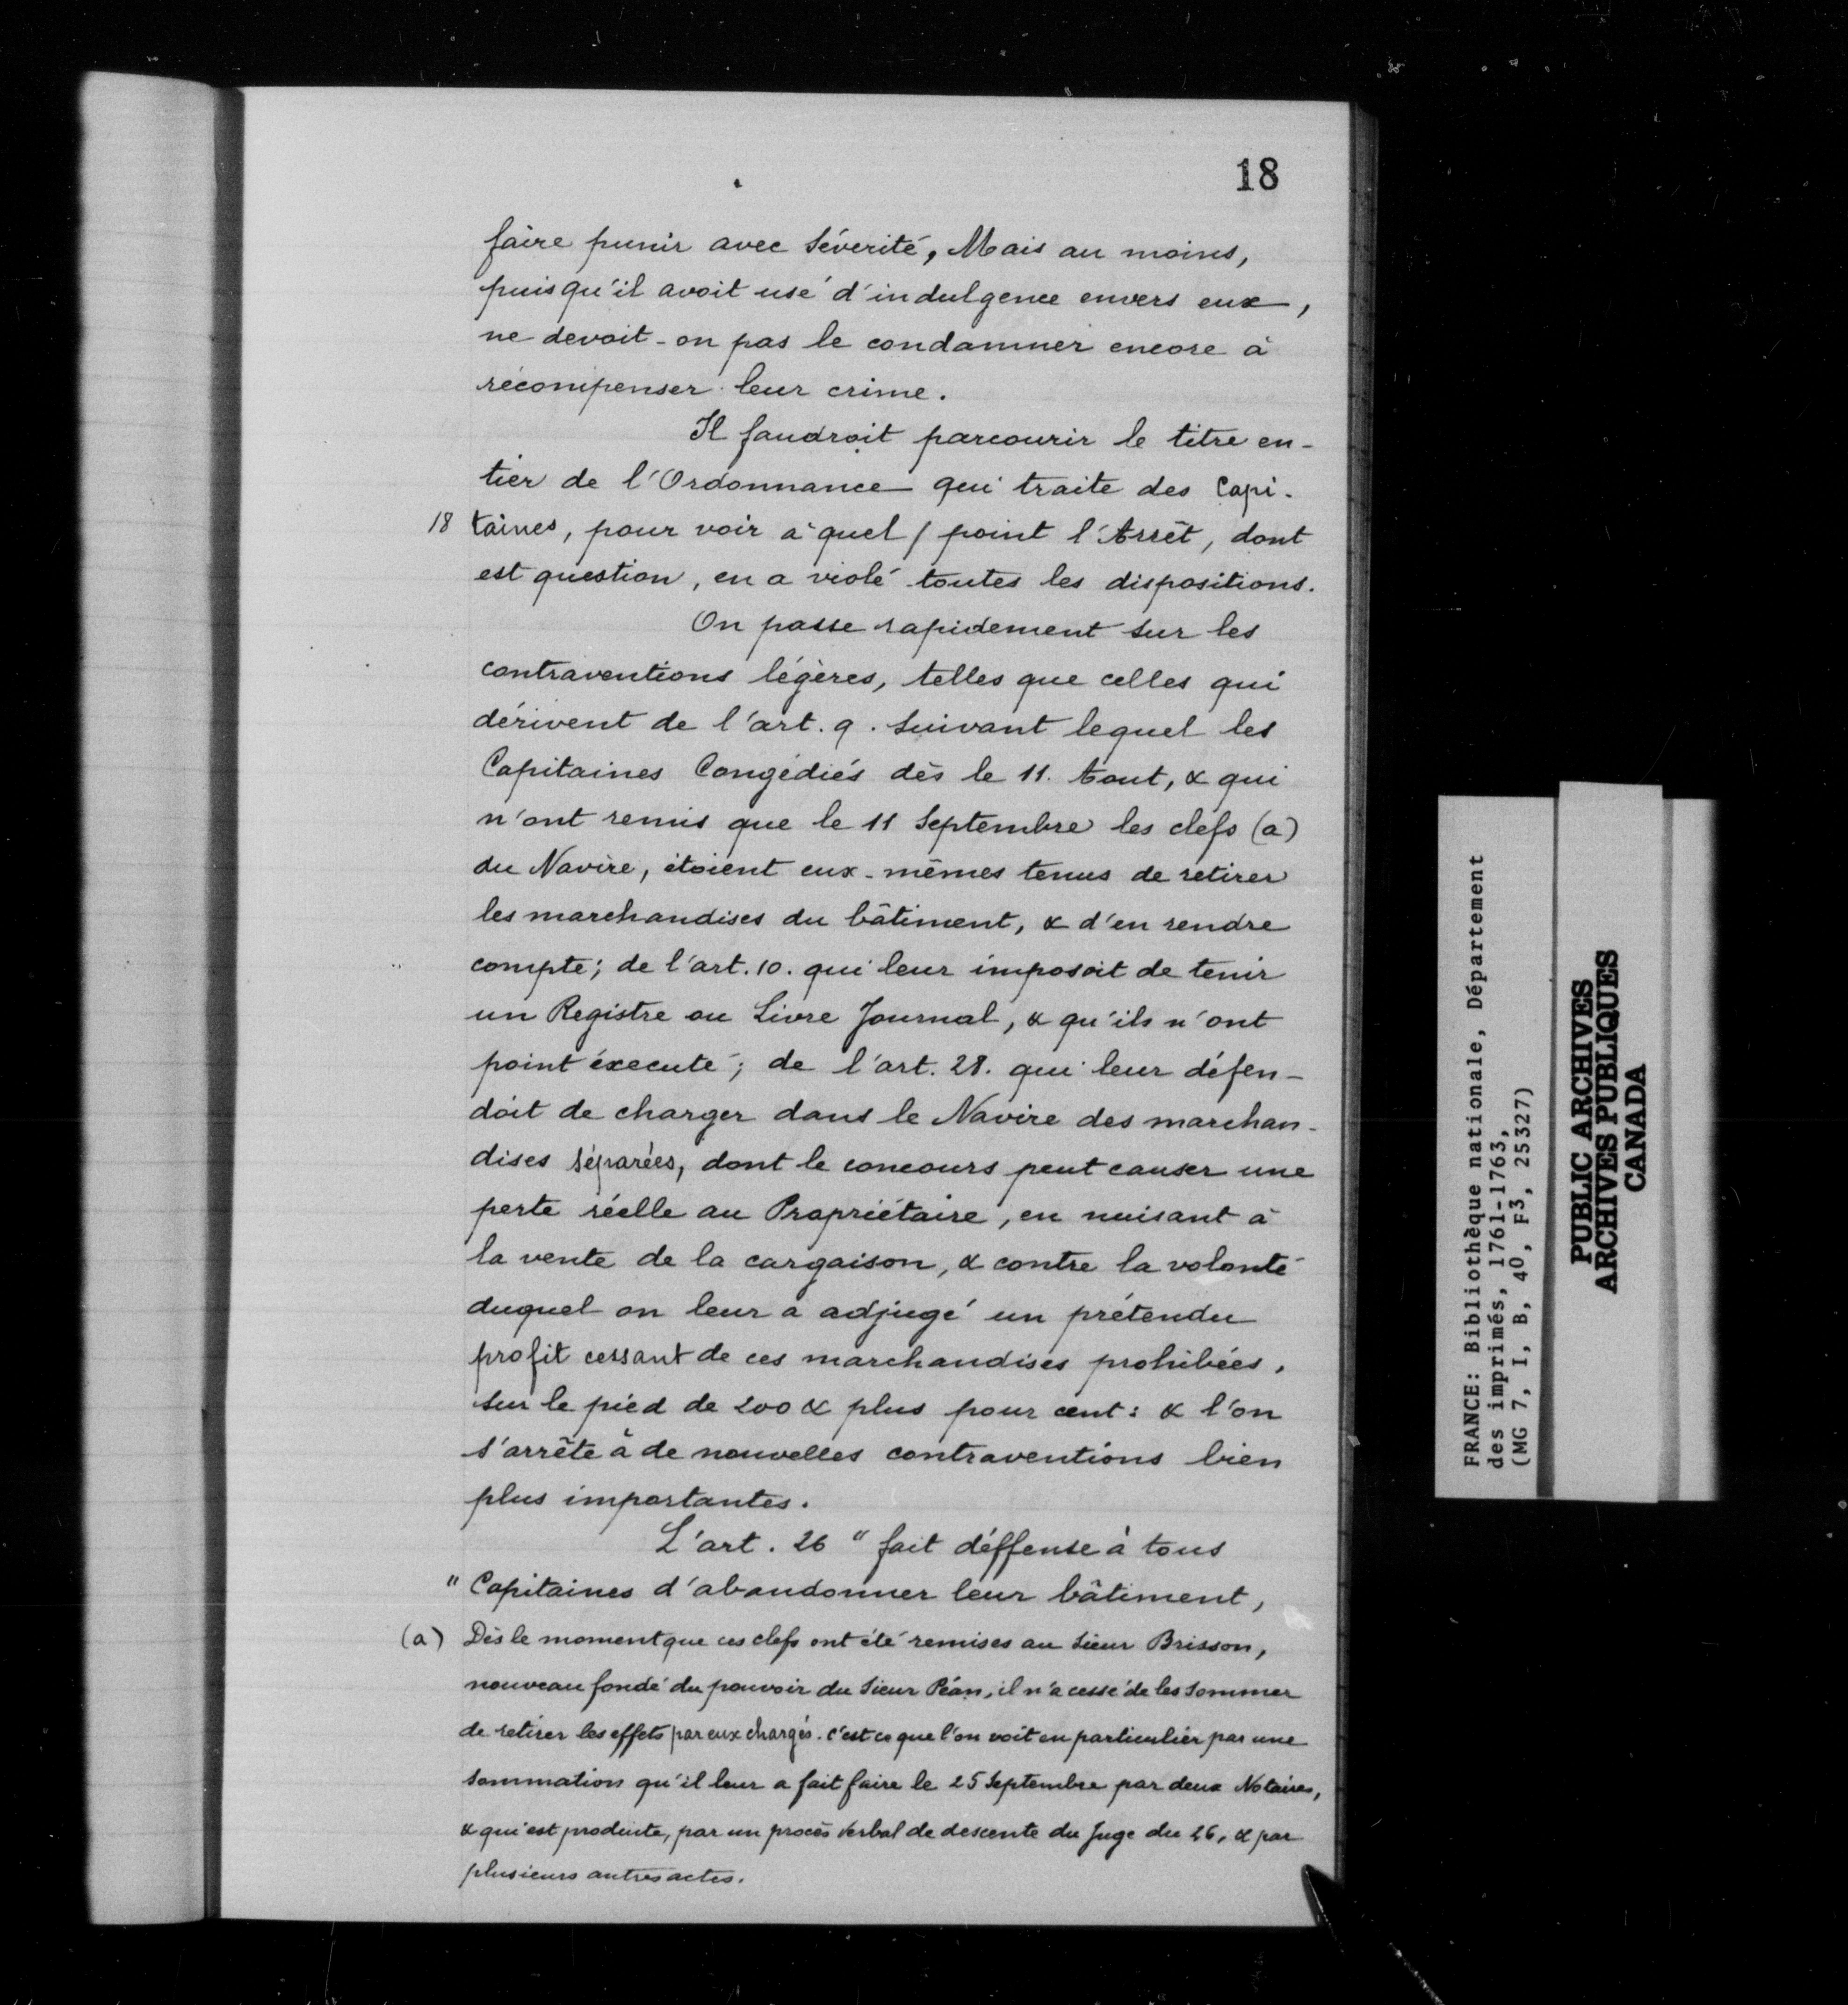 18
faire punir avec sévérité, Mais au moins,
puisqu'il avoit usé d'indulgence envers eux,
ne devoit-on pas le condamner encore à
récompenser leur crime.
Il faudroit parcourir le titre en-
tier de l'Ordonnance qui traite des Capi-
18 taines, pour voir à quel / point l'Arrêt, dont
est question, en a violé toutes les dispositions.
On passe rapidement sur les
contraventions légères, telles que celles qui
dérivent de l'art. 9. suivant lequel les
Capitaines Congédiés dès le 11. Aout, & qui
n'ont remis que le 11 Septembre les clefs (a)
du Navire, étoient eux-mêmes tenus de retirer
les marchandises du bâtiment, & d'en rendre
compte; de l'art. 10. qui leur imposoit de tenir
un Registre ou Livre Journal, & qu'ils n'ont
point éxecuté; de l'art. 28. qui leur défen-
doit de charger dans le Navire des marchan-
dises séparées, dont le concours peut causer une
perte réelle au Propriétaire, en nuisant à
la vente de la cargaison, & contre la volonté
duquel on leur a adjugé un prétendu
profit cessant de ces marchandises prohibées,
sur le pied de 200 & plus pour cent: & l'on
s'arrête à de nouvelles contraventions bien
plus importantes.
L'art. 26 " fait déffense à tous
" Capitaines d'abandonner leur bâtiment,
(a) Dès le moment que ces clefs ont été remises au Sieur Brisson,
nouveau fondé du pouvoir du Sieur Péan, il n'a cessé de les sommer
de retirer les effets par eux chargés. c'est ce que l'on voit en particulier par une
sommation qu'il leur a fait faire le 25 Septembre par deux Notaires,
& qui est produite, par un procès verbal de descente du Juge du 26, & par
plusieurs autres actes.
FRANCE: Bibliothèque nationale, Département
des imprimés, 1761-1763,
(MG 7, I, B, 40, F3, 25327)
PUBLIC ARCHIVES
ARCHIVES PUBLIQUES
CANADA